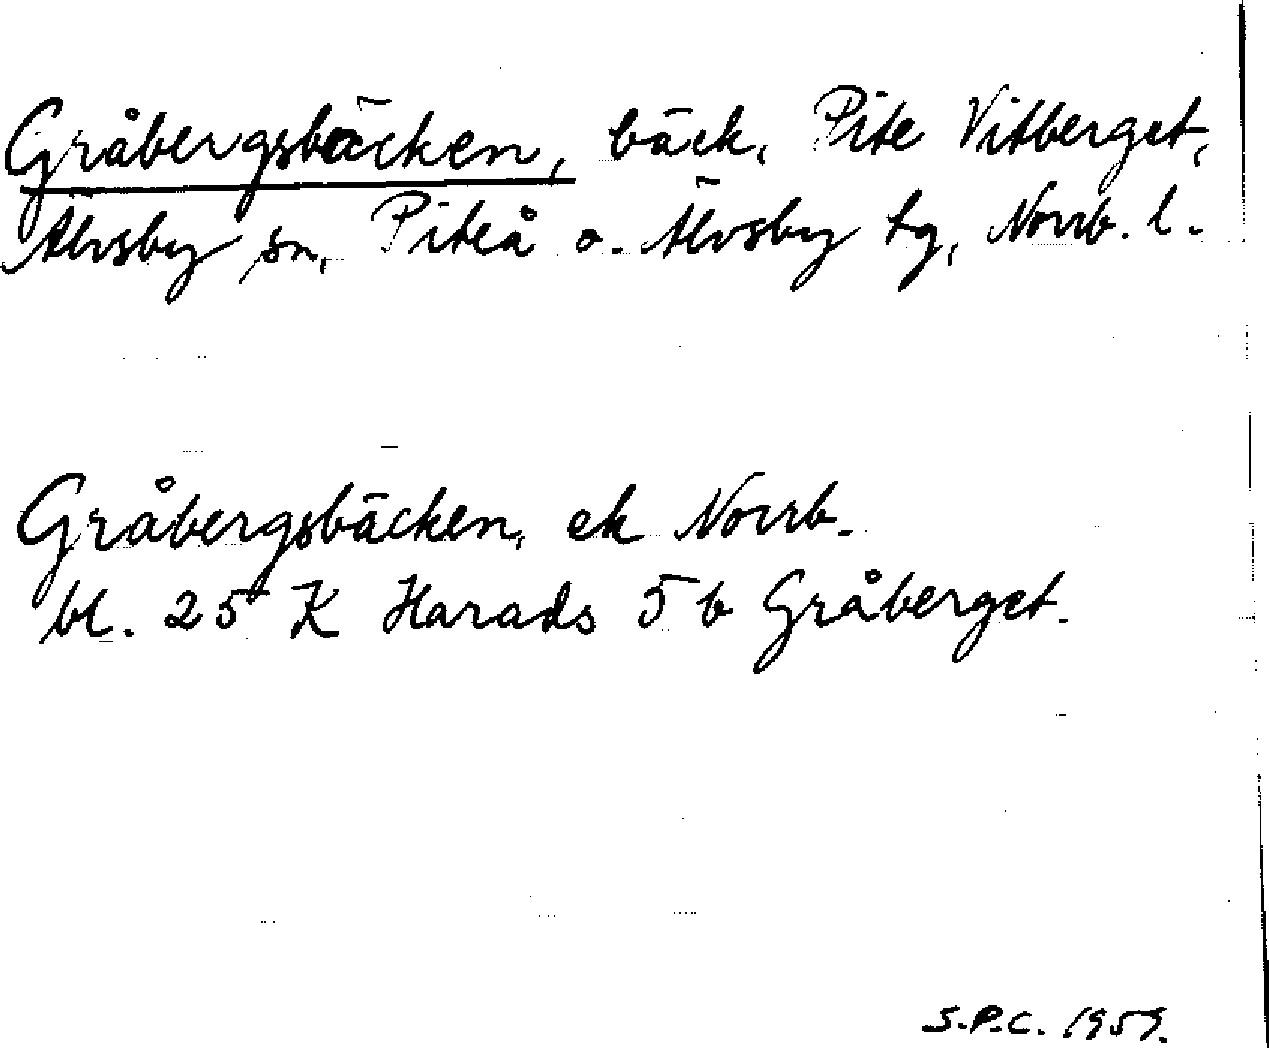 Gråbergsbäcken, bäck, Pite Vitberget,
Älvsby sn, Piteå o. Älvsby tg, Norrb. l.
Gråbergsbäcken, ek Norrb.
bl. 25 K Harads 5 b Gråberget.
S.P.C. 1959.